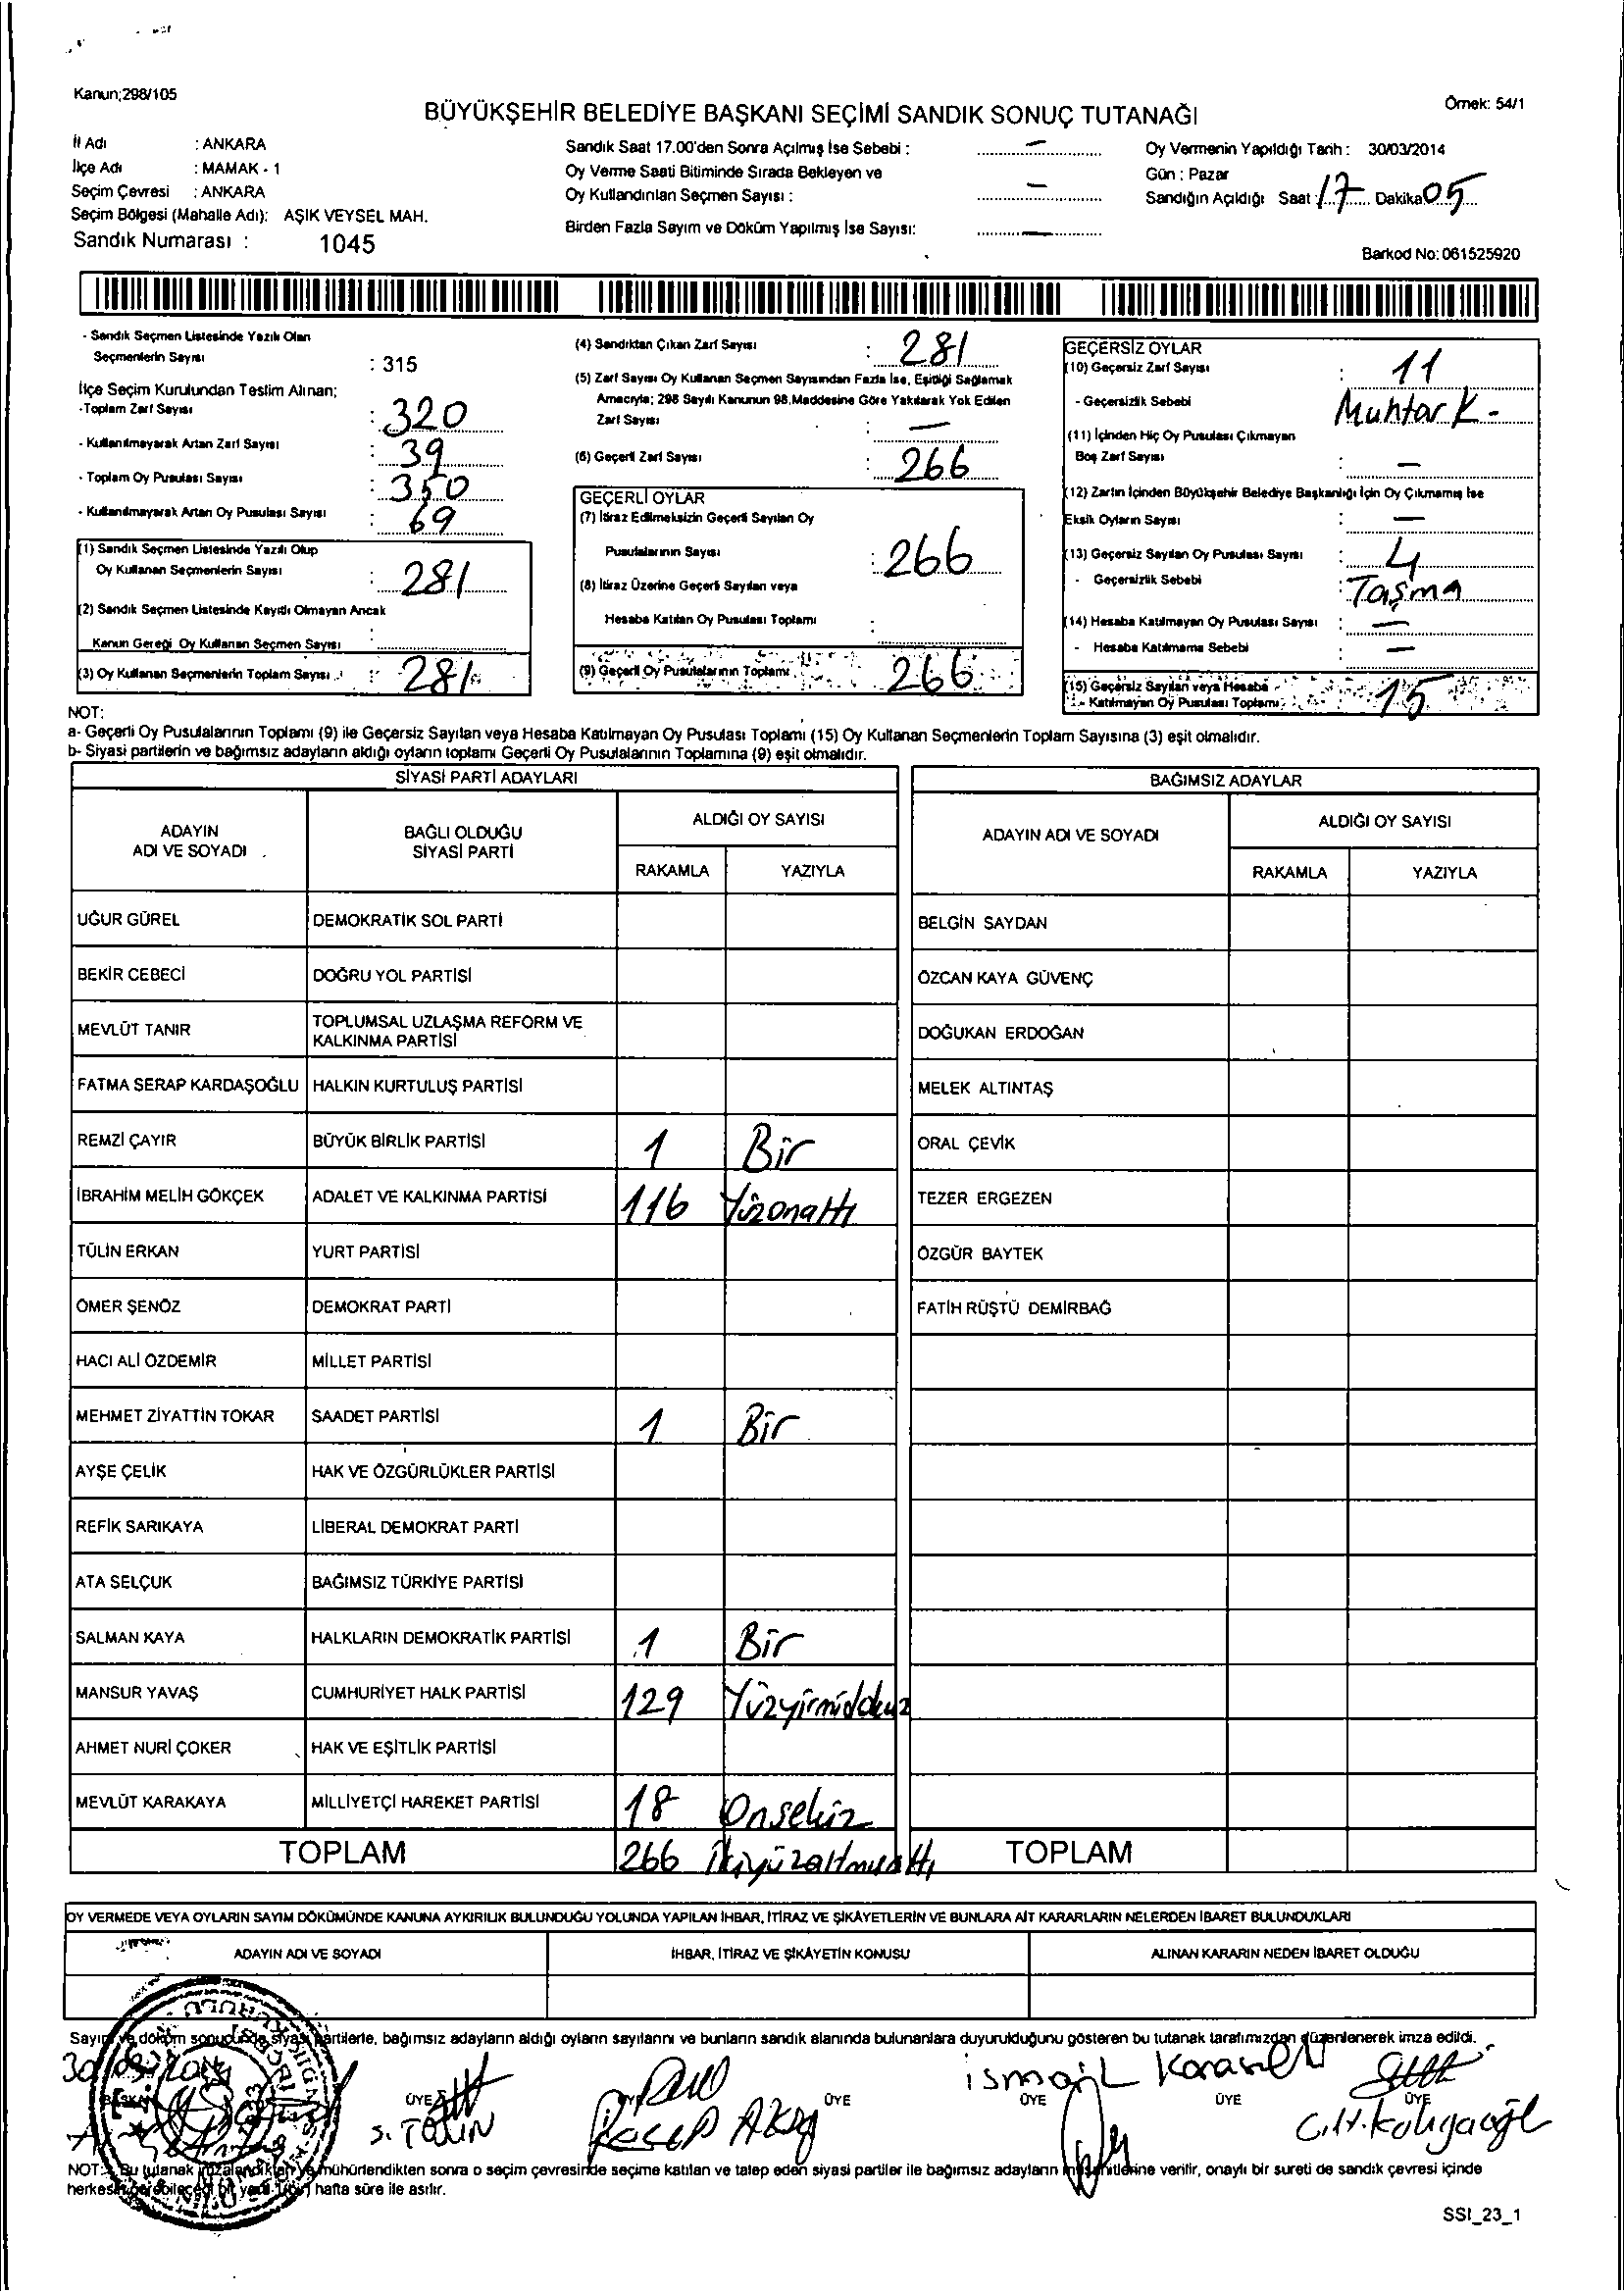 Kanun;298/105
Örnek: 54/1
BÜYÜKŞEHİR BELEDİYE BAŞKANI SEÇİMİ SANDIK SONUÇ TUTANAĞI
İl Adı : ANKARA
İlçe Adı : MAMAK - 1
Seçim Çevresi : ANKARA
Seçim Bölgesi (Mahalle Adı): AŞIK VEYSEL MAH.
Sandık Numarası : 1045
Sandık Saat 17.00'den Sonra Açılmış İse Sebebi : —
Oy Verme Saati Bitiminde Sırada Bekleyen ve
Oy Kullandırılan Seçmen Sayısı : —
Birden Fazla Sayım ve Döküm Yapılmış İse Sayısı: —
Oy Vermenin Yapıldığı Tarih : 30/03/2014
Gün : Pazar
Sandığın Açıldığı Saat : 17 Dakika 05
Barkod No: 061525920
- Sandık Seçmen Listesinde Yazılı Olan
Seçmenlerin Sayısı : 315
İlçe Seçim Kurulundan Teslim Alınan;
-Toplam Zarf Sayısı : 320
- Kullanılmayarak Artan Zarf Sayısı : 39
- Toplam Oy Pusulası Sayısı : 350
- Kullanılmayarak Artan Oy Pusulası Sayısı : 69
(1) Sandık Seçmen Listesinde Yazılı Olup
Oy Kullanan Seçmenlerin Sayısı : 281
(2) Sandık Seçmen Listesinde Kayıtlı Olmayan Ancak
Kanun Gereği Oy Kullanan Seçmen Sayısı :
(3) Oy Kullanan Seçmenlerin Toplam Sayısı : 281
(4) Sandıktan Çıkan Zarf Sayısı : 281
(5) Zarf Sayısı Oy Kullanan Seçmen Sayısından Fazla İse, Eşitliği Sağlamak
Amacıyla; 298 Sayılı Kanunun 98.Maddesine Göre Yakılarak Yok Edilen
Zarf Sayısı : —
(6) Geçerli Zarf Sayısı : 266
GEÇERLİ OYLAR
(7) İtiraz Edilmeksizin Geçerli Sayılan Oy
Pusulalarının Sayısı : 266
(8) İtiraz Üzerine Geçerli Sayılan veya
Hesaba Katılan Oy Pusulası Toplamı :
(9) Geçerli Oy Pusulalarının Toplamı : 266
GEÇERSİZ OYLAR
(10) Geçersiz Zarf Sayısı : 11
- Geçersizlik Sebebi : Muhtar K-
(11) İçinden Hiç Oy Pusulası Çıkmayan
Boş Zarf Sayısı : —
(12) Zarfın İçinden Büyükşehir Belediye Başkanlığı İçin Oy Çıkmamış İse
Eksik Oyların Sayısı : —
(13) Geçersiz Sayılan Oy Pusulası Sayısı : 4
- Geçersizlik Sebebi : Taşma
(14) Hesaba Katılmayan Oy Pusulası Sayısı : —
- Hesaba Katılmama Sebebi : —
(15) Geçersiz Sayılan veya Hesaba
- Katılmayan Oy Pusulası Toplamı : 15
NOT:
a- Geçerli Oy Pusulalarının Toplamı (9) ile Geçersiz Sayılan veya Hesaba Katılmayan Oy Pusulası Toplamı (15) Oy Kullanan Seçmenlerin Toplam Sayısına (3) eşit olmalıdır.
b- Siyasi partilerin ve bağımsız adayların aldığı oyların toplamı Geçerli Oy Pusulalarının Toplamına (9) eşit olmalıdır.
SİYASİ PARTİ ADAYLARI
ADAYIN
ADI VE SOYADI
BAĞLI OLDUĞU
SİYASİ PARTİ
ALDIĞI OY SAYISI
RAKAMLA YAZIYLA
UĞUR GÜREL DEMOKRATİK SOL PARTİ
BEKİR CEBECİ DOĞRU YOL PARTİSİ
MEVLÜT TANIR TOPLUMSAL UZLAŞMA REFORM VE
KALKINMA PARTİSİ
FATMA SERAP KARDAŞOĞLU HALKIN KURTULUŞ PARTİSİ
REMZİ ÇAYIR BÜYÜK BİRLİK PARTİSİ 1 Bir
İBRAHİM MELİH GÖKÇEK ADALET VE KALKINMA PARTİSİ 116 Yüzonaltı
TÜLİN ERKAN YURT PARTİSİ
ÖMER ŞENÖZ DEMOKRAT PARTİ
HACI ALİ ÖZDEMİR MİLLET PARTİSİ
MEHMET ZİYATTİN TOKAR SAADET PARTİSİ 1 Bir
AYŞE ÇELİK HAK VE ÖZGÜRLÜKLER PARTİSİ
REFİK SARIKAYA LİBERAL DEMOKRAT PARTİ
ATA SELÇUK BAĞIMSIZ TÜRKİYE PARTİSİ
SALMAN KAYA HALKLARIN DEMOKRATİK PARTİSİ 1 Bir
MANSUR YAVAŞ CUMHURİYET HALK PARTİSİ 129 Yüzyirmidokuz
AHMET NURİ ÇOKER HAK VE EŞİTLİK PARTİSİ
MEVLÜT KARAKAYA MİLLİYETÇİ HAREKET PARTİSİ 18 Onsekiz
TOPLAM 266 İkiyüzaltmışaltı
BAĞIMSIZ ADAYLAR
ADAYIN ADI VE SOYADI
ALDIĞI OY SAYISI
RAKAMLA YAZIYLA
BELGİN SAYDAN
ÖZCAN KAYA GÜVENÇ
DOĞUKAN ERDOĞAN
MELEK ALTINTAŞ
ORAL ÇEVİK
TEZER ERGEZEN
ÖZGÜR BAYTEK
FATİH RÜŞTÜ DEMİRBAĞ
TOPLAM
OY VERMEDE VEYA OYLARIN SAYIM DÖKÜMÜNDE KANUNA AYKIRILIK BULUNDUĞU YOLUNDA YAPILAN İHBAR, İTİRAZ VE ŞİKÂYETLERİN VE BUNLARA AİT KARARLARIN NELERDEN İBARET BULUNDUKLARI
ADAYIN ADI VE SOYADI İHBAR, İTİRAZ VE ŞİKÂYETİN KONUSU ALINAN KARARIN NEDEN İBARET OLDUĞU
Sayım ve döküm sonucunda siyasi partilerle, bağımsız adayların aldığı oyların sayılarını ve bunların sandık alanında bulunanlara duyurulduğunu gösteren bu tutanak tarafımızdan düzenlenerek imza edildi.
BAŞKAN ÜYE ÜYE ÜYE ÜYE ÜYE
S. TALIN
Recep
ismail
NOT: Bu tutanak imzalandıktan ve mühürlendikten sonra o seçim çevresinde seçime katılan ve talep eden siyasi partiler ile bağımsız adayların müşahitlerine verilir, onaylı bir sureti de sandık çevresi içinde
herkesin görebileceği bir yere 1(bir) hafta süre ile asılır.
SSI_23_1